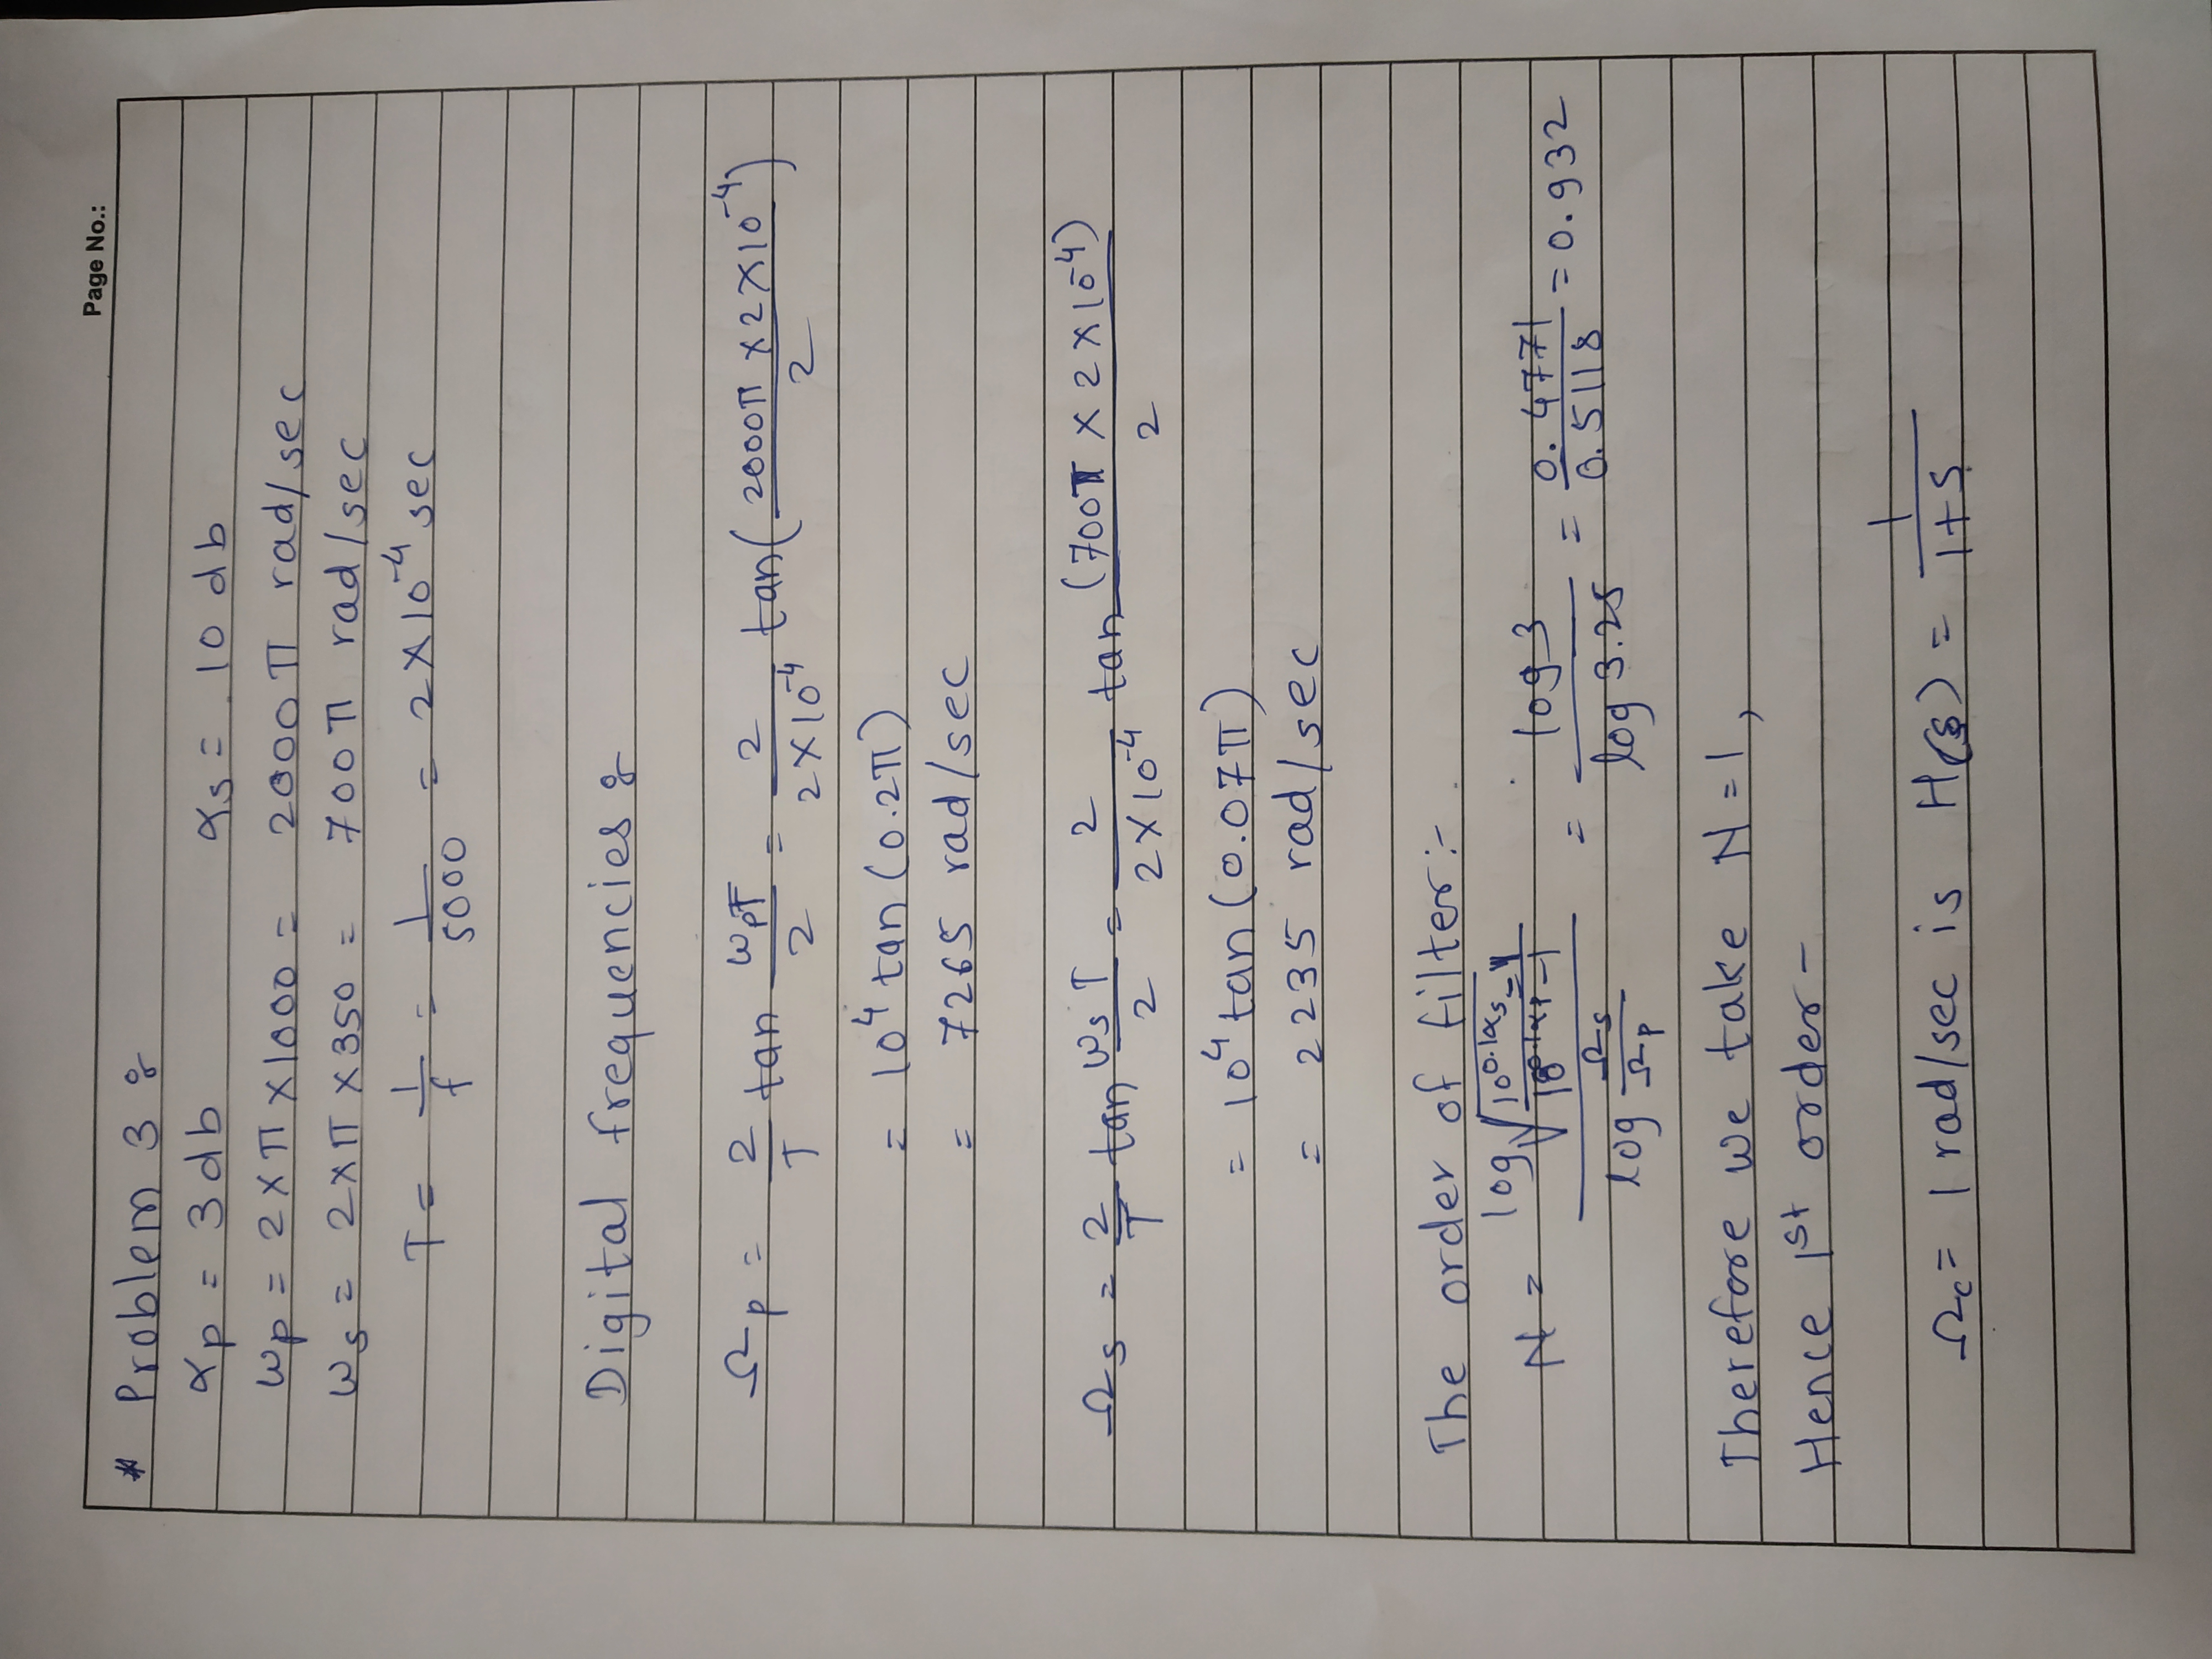 Page No.:
* Problem 3 :
αp = 3 db αs = 10 db
ωp = 2 × π × 1000 = 2000 π rad/sec
ωs = 2 × π × 350 = 700 π rad/sec
T = 1/f = 1/5000 = 2 × 10^-4 sec
Digital frequencies :
Ωp = 2/T tan ωpT/2 = 2/(2 × 10^-4) tan( (2000π × 2 × 10^-4)/2 )
= 10^4 tan (0.2π)
= 7265 rad/sec
Ωs = 2/T tan ωsT/2 = 2/(2 × 10^-4) tan (700π × 2 × 10^-4)/2
= 10^4 tan (0.07π)
= 2235 rad/sec
The order of filter :-
N = log √((10^0.1αs - 1)/(10^0.1αp - 1)) / log Ωs/Ωp = log 3/log 3.25 = 0.4771/0.5118 = 0.932
Therefore we take N = 1,
Hence 1st order -
Ωc = 1 rad/sec is H(s) = 1/(1+s)